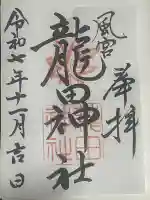 奉拝
風宮
龍田神社
令和七年十一月吉日